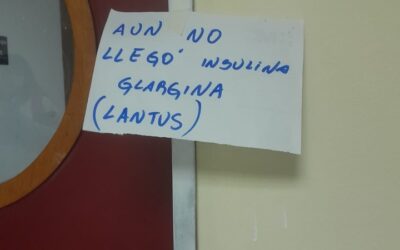 AUN NO
LLEGO' INSULINA
GLARGINA
(LANTUS)